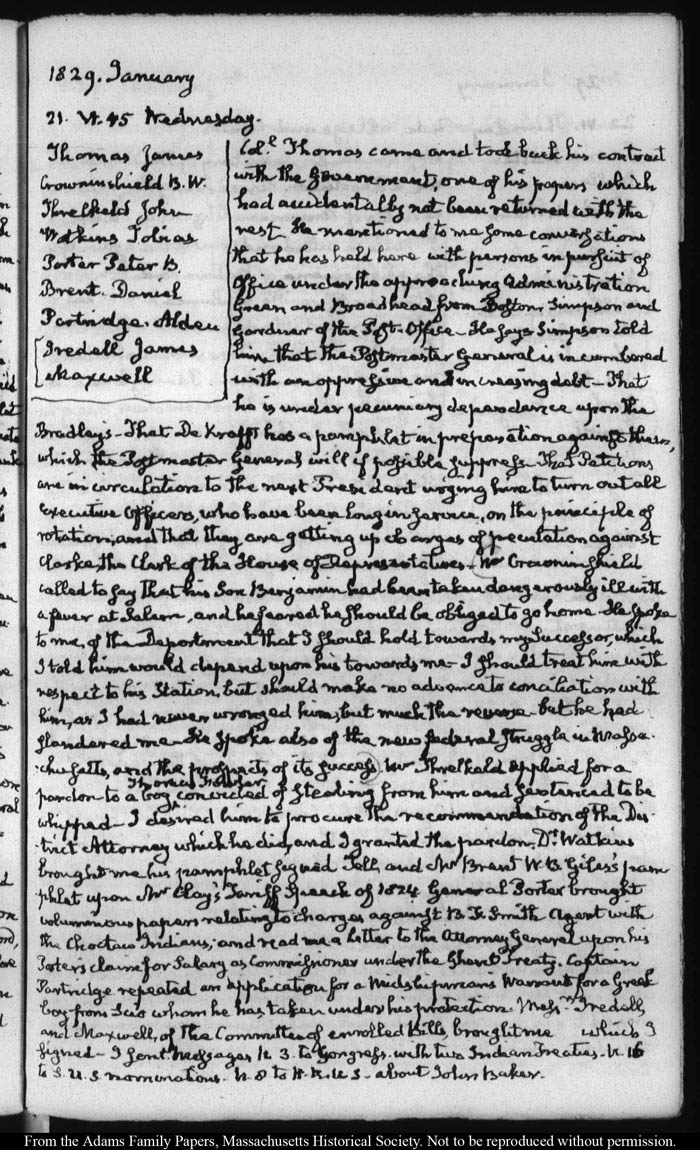 1829. January
21. IV:45 Wednesday.
Thomas James
Crowninshield B. W.
Threlkeld John
Watkins Tobias
Porter Peter B.
Brent. Daniel
Partridge. Alden
Iredell James
Maxwell
Col.l Thomas came and took back his contract
with the Government, one of his papers which
had accidentally not been returned with the
rest. He mentioned to me some conversations
that he has held here with persons in pursuit of
Office under the approaching Administration
Green and Broadhead from Boston, Simpson and
Gardner of the Post-Office. He says Simpson told
him that the Postmaster General is incumbered
with an oppressive and increasing debt - That
he is under pecuniary dependance upon the
Bradley's - That De Krafft has a pamphlet in preparation against them,
which the Postmaster General will if possible suppress. That Petitions
are in circulation to the next President urging him to turn out all
Executive Officers, who have been long in service, on the principle of
rotation, and that they are getting up charges of peculation against
Clarke the Clerk of the House of Representatives. Mr Crowninshield
called to say that his Son Benjamin had been taken dangerously ill with
a fever at Salem, and he feared he should be obliged to go home. He spoke
to me, of the Deportment that I should hold towards my Successor, which
I told him would depend upon his towards me - I should treat him with
respect to his Station, but should make no advance to conciliation with
him, as I had never wronged him, but much the reverse. but he had
slandered me. He spoke also of the new federal struggle in Massa-
-chusetts, and the prospects of its success. Mr Threlkeld applied for a
pardon to a boy Thomas convicted of stealing from him and sentenced to be
whipped - I desired him to procure the recommendation of the Dis-
trict Attorney which he did, and I granted the pardon. Dr Watkins
brought me his pamphlet signed Tell, and Mr Brent W. B. Giles's pam-
phlet upon Mr Clay's Tariff Speech of 1824 General Porter brought
voluminous papers relating to charges against Smith Agent with
the Choctaw Indians; and read me a letter to the Attorney General upon his
Porter's claim for Salary as Commissioner under the Ghent Treaty. Captain
Partridge repeated an application for a Midshipman's Warrant for a Greek
boy from Scio whom he has taken under his protection. Mess.rs Iredell,
and Maxwell, of the Committee of enrolled Bills brought me which I
signed - I sent Messages N. 3. to Congress. with two Indian Treaties. N. 16
to S. U. S nominations. N. 8 to H. R. U S - about John Baker.
From the Adams Family Papers, Massachusetts Historical Society. Not to be reproduced without permission.